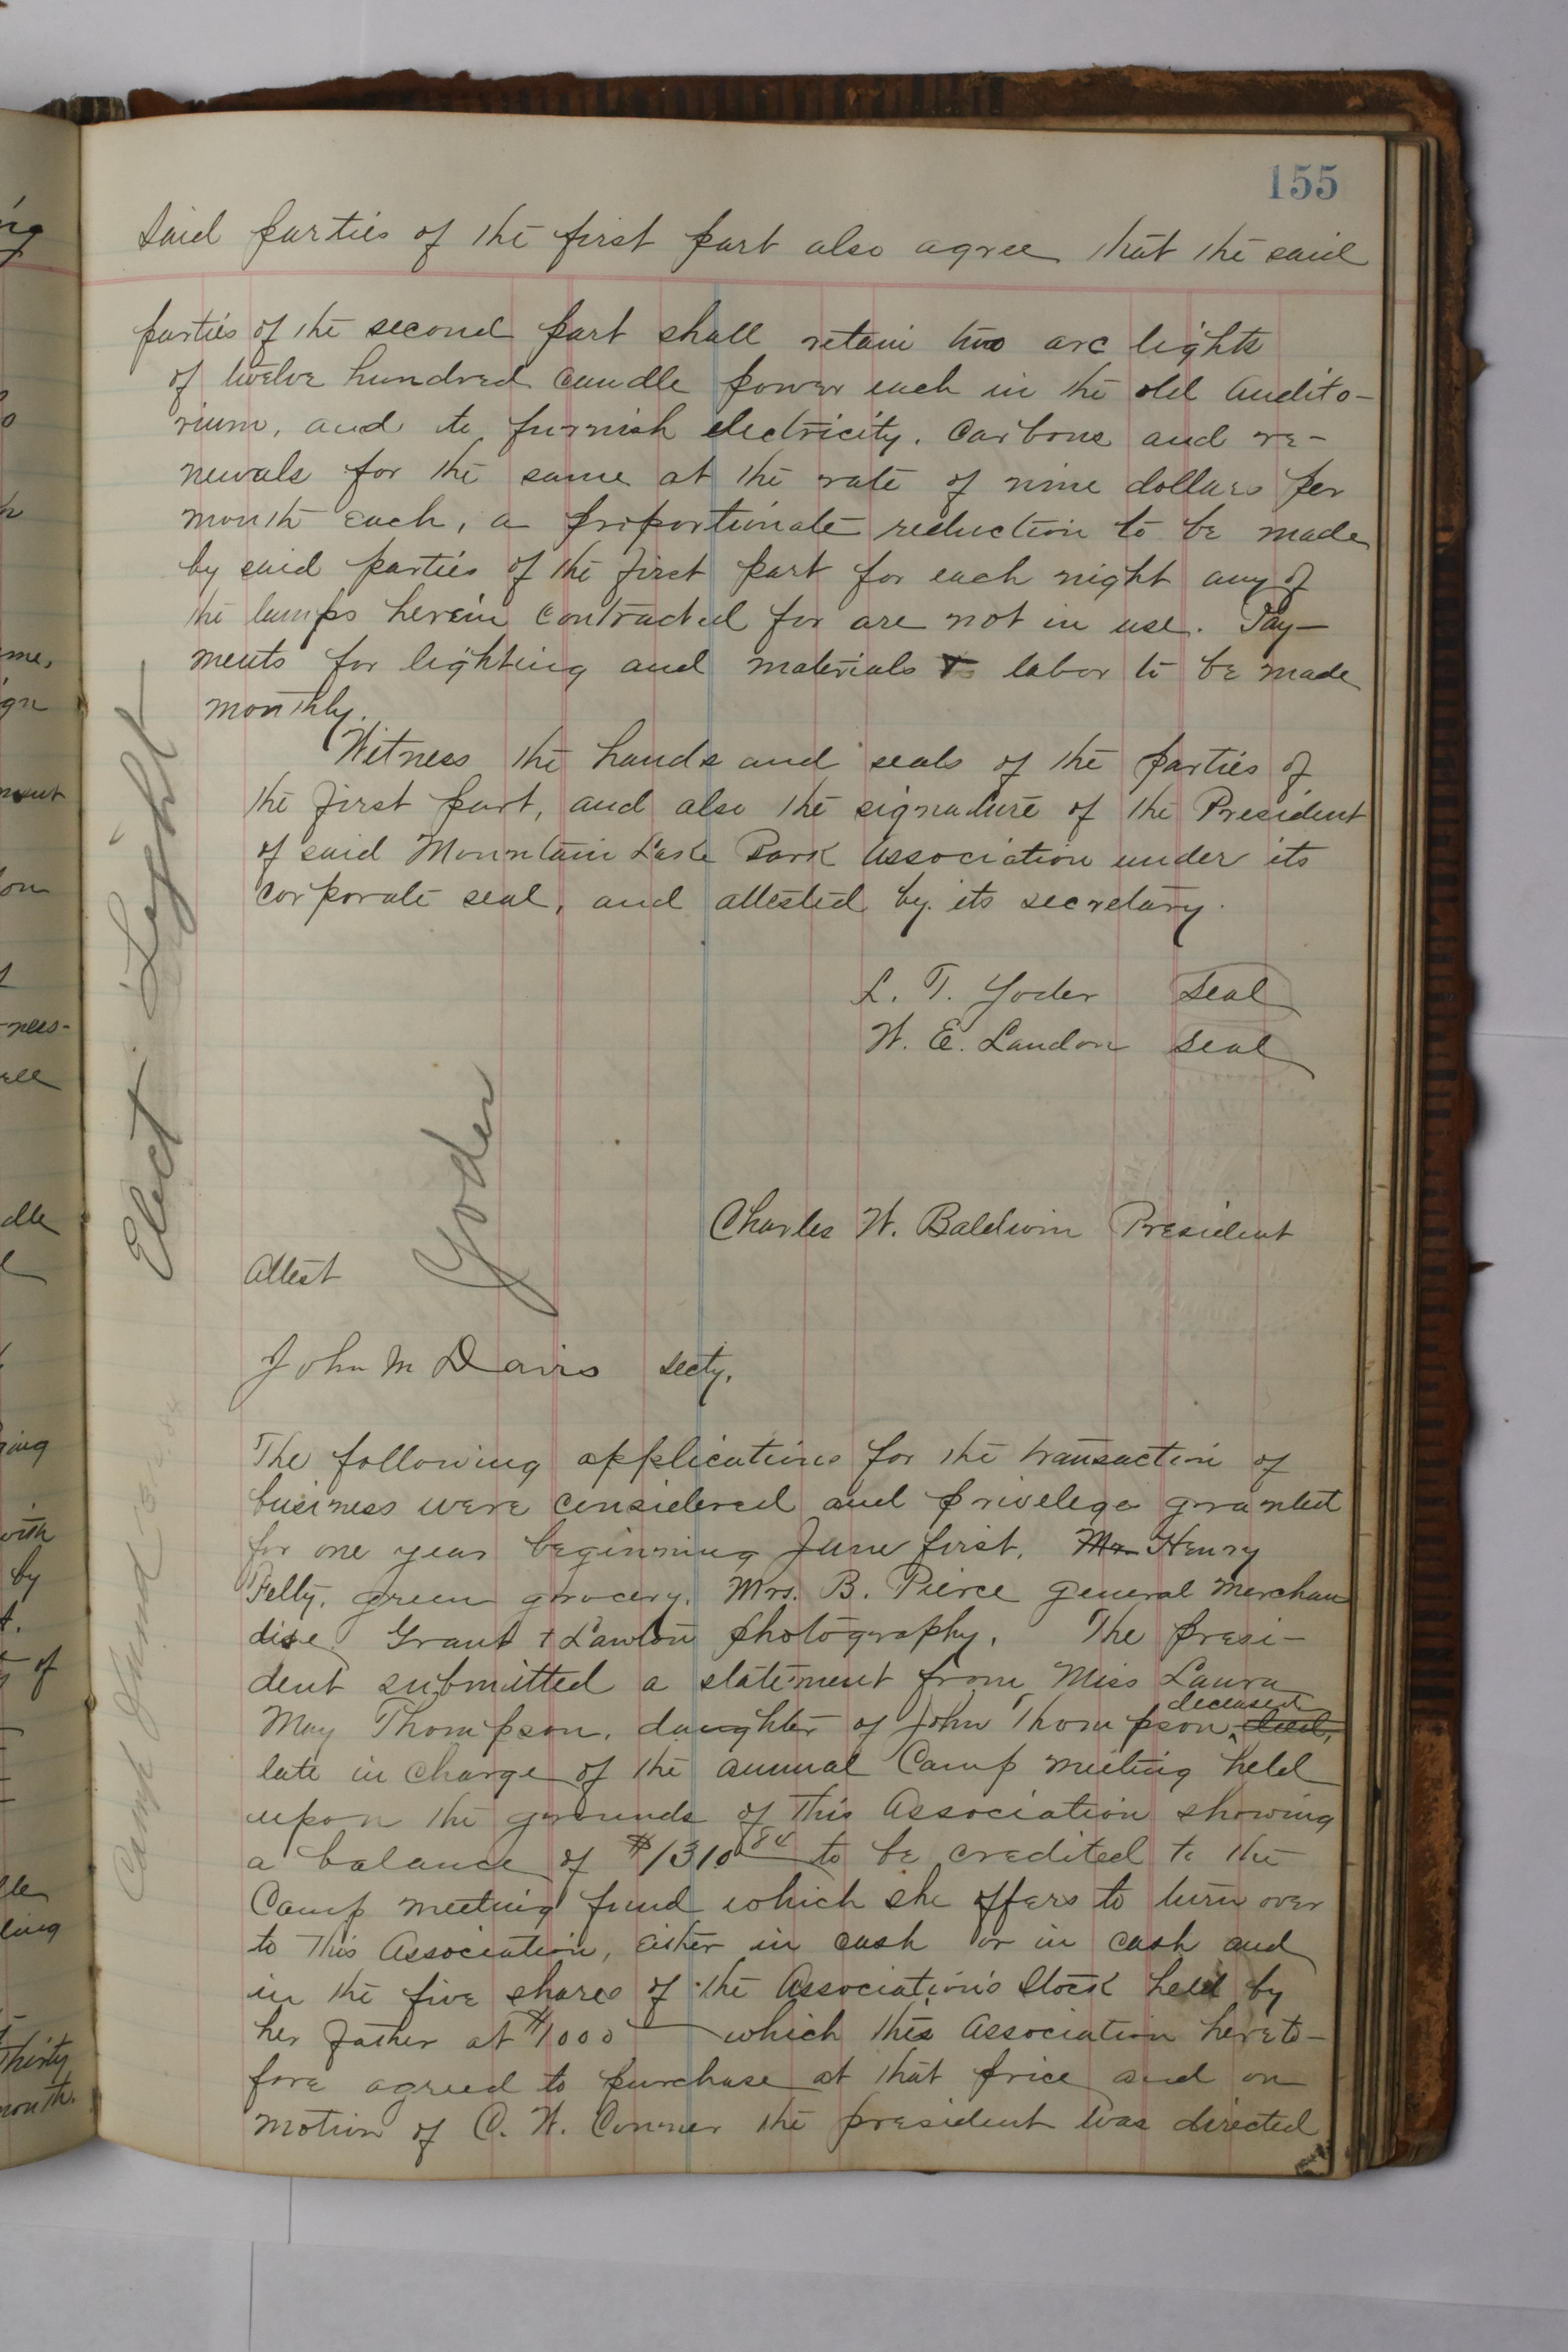 155
Said parties of the first part also agree that the said
parties of the second part shall retain two arc lights
of twelve hundred candle power each in the old Audito-
rium, and to furnish electricity. Carbons and re-
newals for the same at the rate of nine dollars per
month each, a proportionate reduction to be made
by said parties of the first part for each night any of
the lamps herein contracted for are not in use. Pay-
ments for lighting and materials & labor to be made
monthly.
Witness the hands and seals of the parties of
the first part, and also the signature of the President
of said Mountain Lake Park Association under its
corporate seal, and attested by its secretary.
L. T. Yoder Seal
W. E. Landon Seal
Elect. Light
Yoder
Charles W. Baldwin President
Attest
John M Davis secty.
The following applications for the transaction of
business were considered and privelege granted
for one year beginning June first. Mr. Henry
Felty, green grocery. Mrs. B. Pierce General Merchan
dise. Grant & Lawton photography. The presi-
dent submitted a statement from Miss Laura
May Thompson, daughter of John Thompson, deceased
late in charge of the annual Camp meeting held
upon the grounds of this Association showing
a balance of $1310 84 to be credited to the
Camp meeting fund which she offers to turn over
to this Association, either in cash or in cash and
in the five shares of the Association's Stock held by
her father at $1000 which this Association hereto-
fore agreed to purchase at that price and on
motion of C. W. Conner the president was directed
Camp Fund